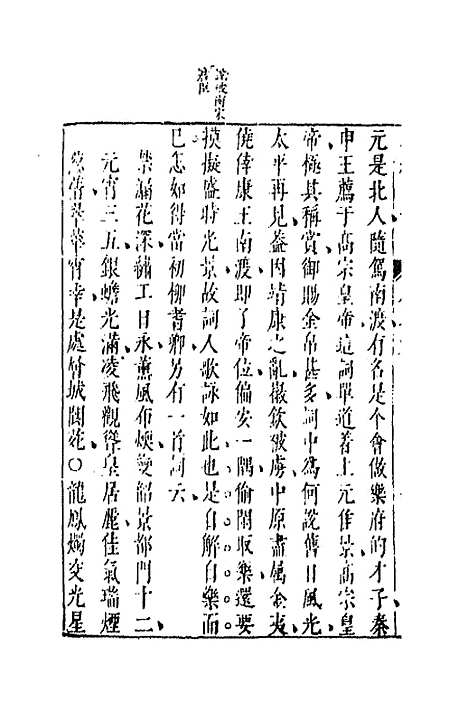 元是北人隨駕南渡有名是个會做樂府的才子秦
申王薦于高宗皇帝這詞單道着上元佳景高宗皇
帝極其稱賞御賜金帛甚多詞中為何說舊日風光
太平再見葢因靖康之亂徽欽被虜中原盡屬金夷
僥倖康王南渡即了帝位偏安一隅偷閒取樂還要
摸擬盛時光景故詞人歌詠如此也是自解自樂而
已怎如得當初柳耆卿另有一首詞云
禁漏花深繡工日永薰風布煖變韶景都門十二
元宵三五銀蟾光滿凌飛觀聳皇居麗佳氣瑞煙
葱蒨翠華宵幸是處層城閬苑〇龍鳳燭交光星